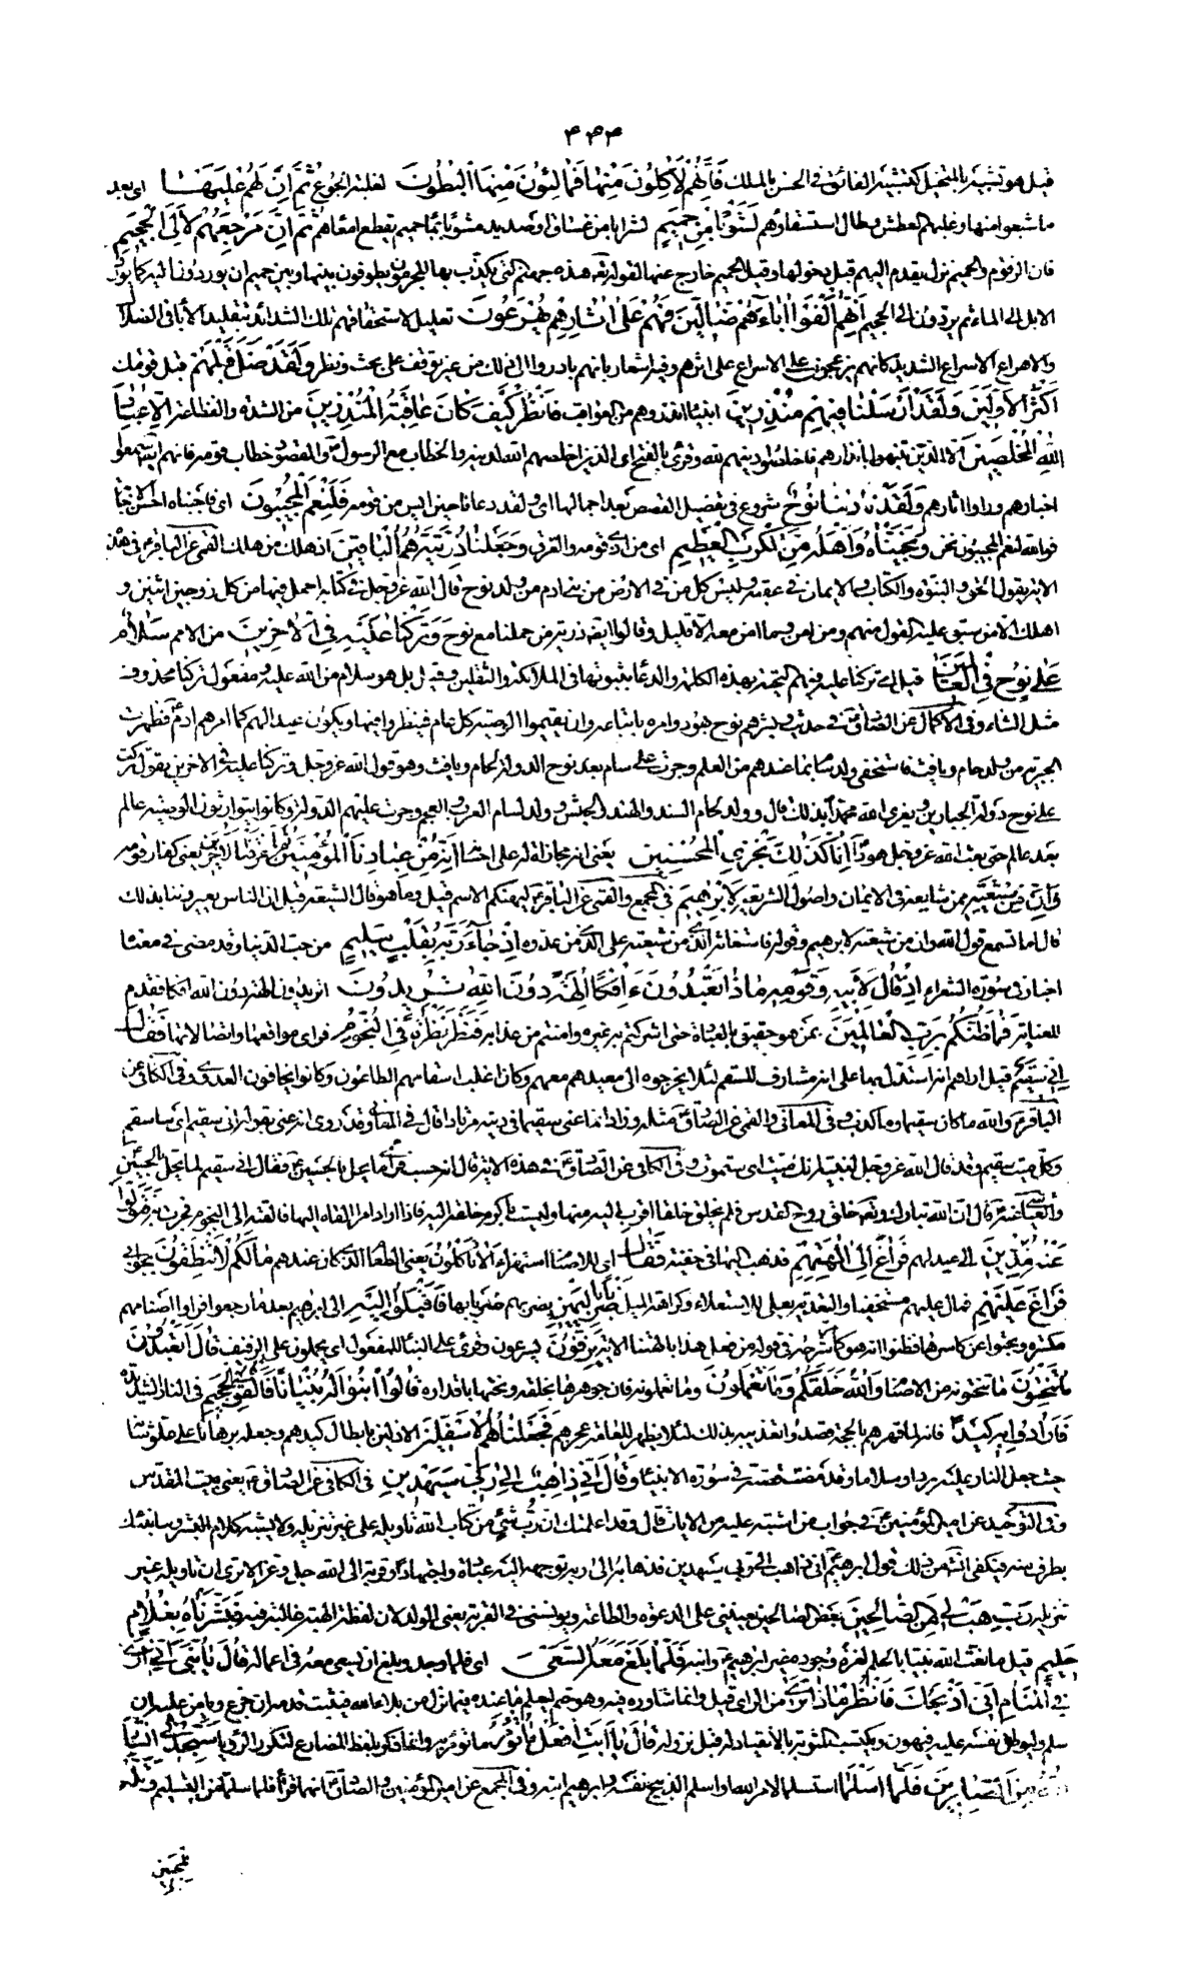 ۴۴۴
قيل هو تشبيه بالمتخيل كتشبيه الفائق فى الحسن بالملك فَاِنَّهُمْ لَآكِلُونَ مِنْهَا فَمَالِئُونَ مِنْهَا الْبُطُونَ لغلبة الجوع ثُمَّ اِنَّ لَهُمْ عَلَيْهَا اى بعد
ما شبعوا منها وغلبهم العطش وطال استسقاؤهم لَشَوْبًا مِنْ حَمِيمٍ لشرابا من غساق او صديد مشوبا بماء حميم يقطع امعاءهم ثُمَّ اِنَّ مَرْجِعَهُمْ لَاِلَى الْجَحِيمِ
فان الزقوم والحميم نزل يقدم اليهم قبل دخولها وقيل الحميم خارج عنها لقوله تع هذه جهنم التى يكذب بها المجرمون يطوفون بينها وبين حميم ان يوردون اليه كما يورد
الابل الى الماء ثم يردون الى الجحيم اِنَّهُمْ اَلْفَوْا اٰبَاءَهُمْ ضَالِّينَ فَهُمْ عَلٰى اٰثَارِهِمْ يُهْرَعُونَ تعليل لاستحقاقهم تلك الشدائد بتقليد الاباء فى الضلال
والاهراع الاسراع الشديد كانهم يزعجون على الاسراع على اثرهم وفيه اشعار بانهم بادروا الى ذلك من غير توقف على بحث ونظر وَلَقَدْ ضَلَّ قَبْلَهُمْ قبل قومك
اَكْثَرُ الْاَوَّلِينَ وَلَقَدْ اَرْسَلْنَا فِيهِمْ مُنْذِرِينَ انبياء انذروهم من العواقب فَانْظُرْ كَيْفَ كَانَ عَاقِبَةُ الْمُنْذَرِينَ من الشدة والفظاعة اِلَّا عِبَادَ
اللهِ الْمُخْلَصِينَ الا الذين تنبهوا بانذارهم فاخلصوا دينهم لله وقرئ بالفتح اى الذين اخلصهم الله لدينه والخطاب مع الرسول والمقصود خطاب قومه فانهم ايضا سمعوا
اخبارهم وراوا اثارهم وَلَقَدْ نَادٰينَا نُوحٌ شروع فى تفصيل القصص بعد اجمالها اى ولقد دعانا حين ايس من قومه فَلَنِعْمَ الْمُجِيبُونَ اى فاجبناه احسن الاجابة
فوالله لنعم المجيبون نحن وَنَجَّيْنَاهُ وَاَهْلَهُ مِنَ الْكَرْبِ الْعَظِيمِ اى من اذى قومه والغرق وَجَعَلْنَا ذُرِّيَّتَهُ هُمُ الْبَاقِينَ اذ هلك من هلك القمى عن الباقر ع فى هذه
الاية يقول الحق والنبوة والكتاب والايمان فى عقبه وليس كل من فى الارض من بنى ادم من ولد نوح قال الله عز وجل فى كتابه احمل فيها من كل زوجين اثنين و
اهلك الا من سبق عليه القول منهم ومن امن وما امن معه الا قليل وقال ايضا ذرية من حملنا مع نوح وَتَرَكْنَا عَلَيْهِ فِى الْاٰخِرِينَ من الامم سَلَامٌ
عَلٰى نُوحٍ فِى الْعَالَمِينَ قيل اى تركنا عليه فيهم التحية بهذه الكلمة والدعاء بثبوتها فى الملائكة والثقلين وقيل بل هو سلام من الله عليه ومفعول تركنا محذوف
مثل الثناء وفى الاكمال عن الصادق ع فى حديث وبشرهم نوح بهود وامرهم باتباعه وان يقيموا الوصية كل عام فينظروا فيها ويكون عيدا لهم كما امرهم ادم فظهرت
الجبرية من ولد حام ويافث فاستخفى ولد سام بما عندهم من العلم وجرت على سام بعد نوح الدولة لحام ويافث وهو قول الله عز وجل وتركنا عليه فى الاخرين يقول تركت
على نوح دولة الجبارين ويعزى الله محمدا بذلك قال وولد لحام السند والهند والحبش وولد لسام العرب والعجم وجرت عليهم الدولة وكانوا يتوارثون الوصية عالم
بعد عالم حتى بعث الله عز وجل هودا اِنَّا كَذٰلِكَ نَجْزِى الْمُحْسِنِينَ يعنى انه مجازاة له على احسانه اِنَّهُ مِنْ عِبَادِنَا الْمُؤْمِنِينَ ثُمَّ اَغْرَقْنَا الْاٰخَرِينَ يعنى كفار قومه
وَاِنَّ مِنْ شِيعَتِهِ ممن شايعه فى الايمان واصول الشريعة لَاِبْرَاهِيمَ فى المجمع والقمى عن الباقر ع ليهنكم الاسم قيل وما هو قال الشيعة قيل ان الناس يعيروننا بذلك
قال اما تسمع قول الله وان من شيعته لابراهيم وقوله فاستغاثه الذى من شيعته على الذى من عدوه اِذْ جَاءَ رَبَّهُ بِقَلْبٍ سَلِيمٍ من حب الدنيا وقد مضى فى معناه
اخبار فى سورة الشعراء اِذْ قَالَ لِاَبِيهِ وَقَوْمِهِ مَاذَا تَعْبُدُونَ ءَاِفْكًا اٰلِهَةً دُونَ اللهِ تُرِيدُونَ اتريدون الهة دون الله افكا فقدم
للعناية فَمَا ظَنُّكُمْ بِرَبِّ الْعَالَمِينَ بمن هو حقيق بالعبادة حتى اشركتم به غيره وامنتم من عذابه فَنَظَرَ نَظْرَةً فِى النُّجُومِ فراى مواقعها واتصالاتها فَقَالَ
اِنِّى سَقِيمٌ قيل اراهم انه استدل بها على انه مشارف للسقم لئلا يخرجوه الى معبدهم وكان اغلب اسقامهم الطاعون وكانوا يخافون العدوى وفى الكافى عن
الباقر ع والله ما كان سقيما وما كذب وفى المعانى والقمى عن الصادق ع مثله وزاد انما عنى سقيما فى دينه مرتادا قال فى المعانى وقد روى انه عنى بقوله انى سقيم اى ساسقم
وكل ميت سقيم وقد قال الله عز وجل لنبيه انك ميت اى ستموت وفى الكافى عن الصادق ع فى هذه الاية قال انه حسب فراى ما يحل بالحسين ع فقال انى سقيم لما يحل بالحسين
والعياشى عنه قال ان الله تبارك وتع خلق روح القدس فلم يخلق خلقا اقرب اليه منها وليست باكرم خلقه اليه فاذا اراد امرا القاه اليها فالقته الى النجوم فجرت به فَتَوَلَّوْا
عَنْهُ مُدْبِرِينَ الى عيد لهم فَرَاغَ اِلٰى اٰلِهَتِهِمْ فذهب اليها فى خفية فَقَالَ اى للاصنام استهزاء اَلَا تَأْكُلُونَ يعنى الطعام الذى كان عندهم مَا لَكُمْ لَا تَنْطِقُونَ بجوابى
فَرَاغَ عَلَيْهِمْ فمال عليهم مستخفيا والتعدية بعلى للاستعلاء وكراهة الميل ضَرْبًا بِالْيَمِينِ يضربهم ضربا بها فَاَقْبَلُوا اِلَيْهِ الى ابراهيم بعد ما رجعوا فراوا اصنامهم
مكسرة وبحثوا عن كاسرها فظنوا انه هو كما شرحه فى قوله من فعل هذا بالهتنا الاية يَزِفُّونَ يسرعون وقرئ على البناء للمفعول اى يحملون على الزفيف قَالَ اَتَعْبُدُونَ
مَا تَنْحِتُونَ ما تنحتونه من الاصنام وَاللهُ خَلَقَكُمْ وَمَا تَعْمَلُونَ وما تعملونه فان جوهرها بخلقه ونحتها باقداره قَالُوا ابْنُوا لَهُ بُنْيَانًا فَاَلْقُوهُ فِى الْجَحِيمِ فى النار الشديدة
فَاَرَادُوا بِهِ كَيْدًا فانه لما قهرهم بالحجة قصدوا تعذيبه بذلك لئلا يظهر للعامة عجزهم فَجَعَلْنَاهُمُ الْاَسْفَلِينَ الاذلين بابطال كيدهم وجعله برهانا على علو شانه
حيث جعل النار عليه بردا وسلاما وقد مضت قصته فى سورة الانبياء وَقَالَ اِنِّى ذَاهِبٌ اِلٰى رَبِّى سَيَهْدِينِ فى الكافى عن الصادق ع يعنى بيت المقدس
وفى التوحيد عن امير المؤمنين ع فى جواب من اشتبه عليه من الايات قال وقد اعلمتك ان رب شئ من كتاب الله تاويله على غير تنزيله ولا يشبه كلام البشر وسانبئك
بطرف منه فيكفى انشاء من ذلك قول ابراهيم ع انى ذاهب الى ربى سيهدين فذهابه الى ربه توجهه اليه عبادة واجتهادا وقربة الى الله جل وعز الا ترى ان تاويله غير
تنزيله رَبِّ هَبْ لِى مِنَ الصَّالِحِينَ بعض الصالحين يعيننى على الدعوة والطاعة ويونسنى فى الغربة يعنى الولد لان لفظة الهبة غالبة فيه فَبَشَّرْنَاهُ بِغُلَامٍ
حَلِيمٍ قيل ما نعت الله نبيا بالحلم لعزة وجوده غير ابراهيم ع وابنه فَلَمَّا بَلَغَ مَعَهُ السَّعْىَ اى فلما وجد وبلغ ان يسعى معه فى اعماله قَالَ يَا بُنَىَّ اِنِّى اَرٰى
فِى الْمَنَامِ اَنِّى اَذْبَحُكَ فَانْظُرْ مَاذَا تَرٰى من الراى قيل وانما شاوره فيه وهو حتم ليعلم ما عنده فيما نزل من بلاء الله فيثبت قدمه ان جزع ويامن عليه ان
سلم وليوطن نفسه عليه فيهون ويكتسب المثوبة بالانقياد له قبل نزوله قَالَ يَا اَبَتِ افْعَلْ مَا تُؤْمَرُ ما تؤمر به وانما ذكر بلفظ المضارع لتكرر الرؤيا سَتَجِدُنِى اِنْ شَاءَ
اللهُ مِنَ الصَّابِرِينَ فَلَمَّا اَسْلَمَا استسلما لامر الله او اسلم الذبيح نفسه وابراهيم ابنه وفى المجمع عن امير المؤمنين والصادق ع انهما قرءا فلما سلما من التسليم وَتَلَّهُ
للجبين